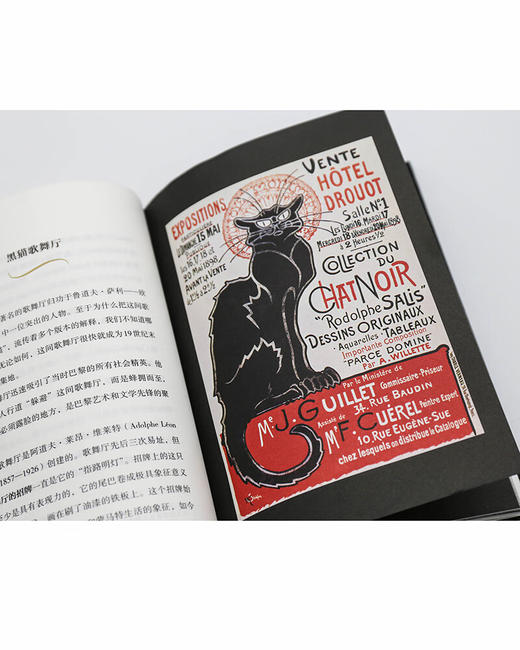 黑猫歌舞厅
著名的歌舞厅归功于鲁道夫·萨利——
中一位突出的人物。至于为什么把这间歌
，流传着多个版本的解释，我们不知道哪
无论如何，这间歌舞厅很快就成为19世纪末
集地。
厅迅速吸引了当时巴黎的所有社会精英。他
人行道“躲避”这间歌舞厅，而是蜂拥而至，
必须露脸的地方，是巴黎艺术和文学先锋的聚
歌舞厅是阿道夫·莱昂·维莱特（Adolphe Léon
1857—1926）创建的。歌舞厅先后三次易址，但
厅的招牌一直是它的“指路明灯”。招牌上的这只
至少是具有表现力的，它的尾巴卷成极具象征意义
画在刷了油漆的铁板上。这个招牌始
马特生活的象征，如今
VENTE
HÔTEL
DROUOT
Salle N°1
Lundi 16, Mardi 17
MERCREDI 18
à 2 Heures ½
EXPOSITIONS
DIMANCHE 15 MAI
Publique
les 16, 17, 18 et
20 MAI 1898
AVANT LA VENTE
de 1h à 2h ½
COLLECTION
DU
CHAT NOIR
"Rodolphe SALIS"
DESSINS ORIGINAUX
Aquarelles · TABLEAUX
Importante Composition
"PARCE DOMINE"
Par A. WILLETTE
Par le Ministère de
Me J. GUILLET Commissaire-Priseur
34, RUE BAUDIN
Assisté de
M. F. CUÉREL Peintre Expert
10 RUE EUGÈNE-SUE
chez lesquels on distribue le Catalogue